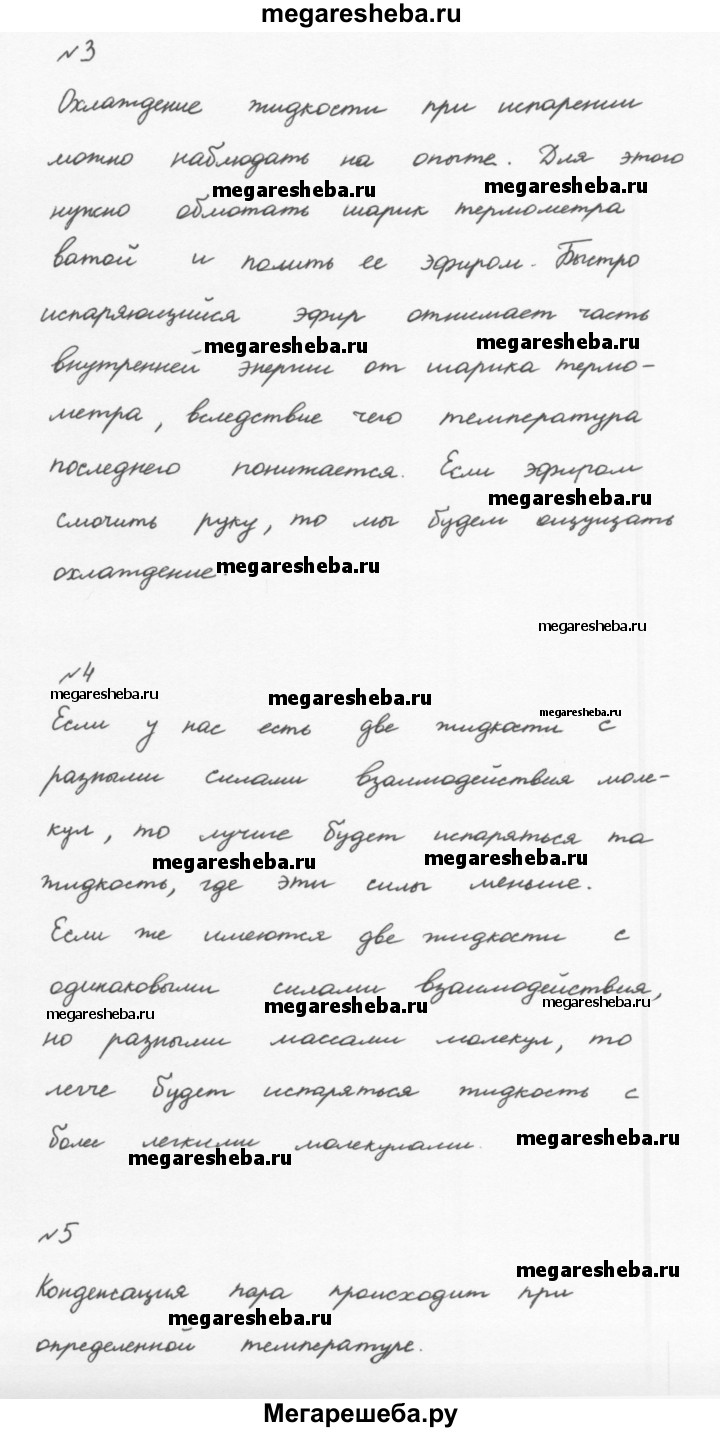 megaresheba.ru
№3
Охлаждение жидкости при испарении
можно наблюдать на опыте. Для этого
megaresheba.ru megaresheba.ru
нужно обмотать шарик термометра
ватой и полить ее эфиром. Быстро
испаряющийся эфир отнимает часть
megaresheba.ru megaresheba.ru
внутренней энергии от шарика термо-
метра, вследствие чего температура
последнего понижается. Если эфиром
megaresheba.ru
смочить руку, то мы будем ощущать
охлаждение. megaresheba.ru
megaresheba.ru
№4
megaresheba.ru megaresheba.ru megaresheba.ru
Если у нас есть две жидкости с
разными силами взаимодействия моле-
кул, то лучше будет испаряться та
megaresheba.ru megaresheba.ru
жидкость, где эти силы меньше.
Если же имеются две жидкости с
одинаковыми силами взаимодействия,
megaresheba.ru megaresheba.ru megaresheba.ru
но разными массами молекул, то
легче будет испаряться жидкость с
более легкими молекулами.
megaresheba.ru megaresheba.ru
№5
megaresheba.ru
Конденсация пара происходит при
megaresheba.ru
определенной температуре.
Мегарешеба.ру